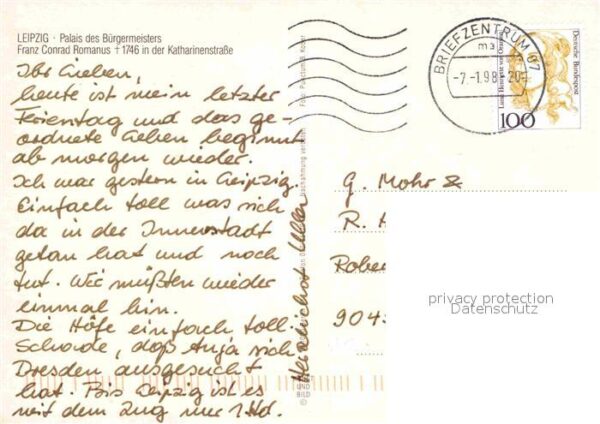 LEIPZIG · Palais des Bürgermeisters
Franz Conrad Romanus †1746 in der Katharinenstraße
Ihr Lieben,
heute ist mein letzter
Ferientag und das ge-
ordnete Leben beginnt
ab morgen wieder.
Ich war gestern in Leipzig.
Einfach toll was sich
da in der Innenstadt
getan hat und noch
tut. Wir müßten wieder
einmal hin.
Die Höfe einfach toll.
Schade, daß Anja sich
Dresden ausgesucht
hat. Bis Leipzig ist es
mit dem Zug nur 1 Std.
Herzlichst
UND
BILD
©
BRIEFZENTRUM 07
ma
-7.-1.98
Deutsche Bundespost
100
G. Mohr &
R.
Rober
904
privacy protection
Datenschutz